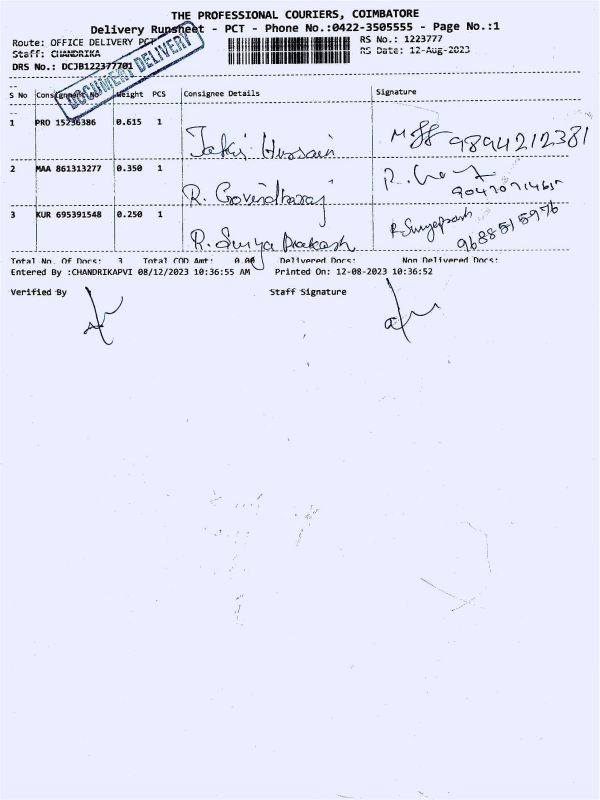 THE PROFESSIONAL COURIERS, COIMBATORE
Delivery Runsheet - PCT - Phone No.:0422-3505555 - Page No.:1
Route: OFFICE DELIVERY PCT
RS No.: 1223777
Staff: CHANDRIKA
RS Date: 12-Aug-2023
DRS No.: DCJB122377701
DOCUMENT DELIVERY
S No Consignment No Weight PCS Consignee Details Signature
1 PRO 15236386 0.615 1 Jakir Hussain 9894212381
2 MAA 861313277 0.350 1 R. Govindharaj
3 KUR 695391548 0.250 1 R. Suriya Prakash 9688515976
Total No. Of Docs: 3 Total COD Amt: 0.00 Delivered Docs: Non Delivered Docs:
Entered By :CHANDRIKAPVI 08/12/2023 10:36:55 AM Printed On: 12-08-2023 10:36:52
Verified By Staff Signature